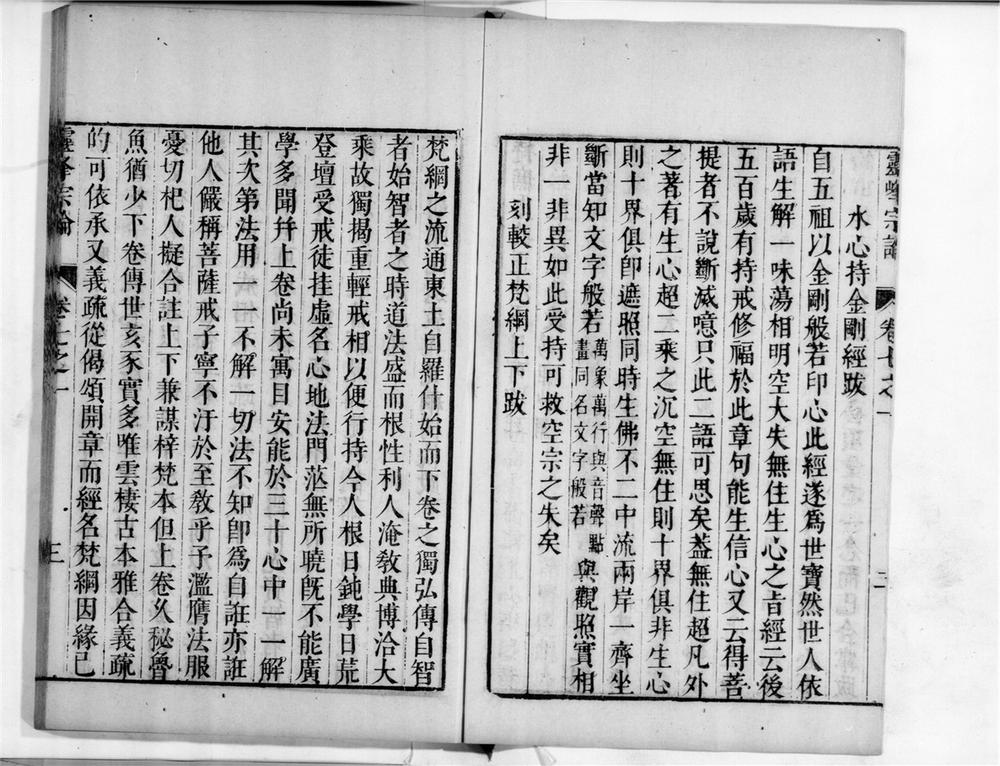 靈峰宗論　卷七之一　二
水心持金剛經跋
自五祖以金剛般若印心此經遂為世寶然世人依
語生解一味蕩相明空大失無住生心之旨經云後
五百歲有持戒修福於此章句能生信心又云得菩
提者不說斷滅噫只此二語可思矣蓋無住超凡外
之著有生心超二乘之沉空無住則十界俱非生心
則十界俱卽遮照同時生佛不二中流兩岸一齊坐
斷當知文字般若萬象萬行與音聲點畫同名文字般若與觀照實相
非一非異如此受持可救空宗之失矣
刻較正梵網上下跋
梵網之流通東土自羅什始而下卷之獨弘傳自智
者始智者之時道法盛而根性利人淹敎典博洽大
乘故獨揭重輕戒相以便行持今人根日鈍學日荒
登壇受戒徒挂虛名心地法門茫無所曉旣不能廣
學多聞幷上卷尚未寓目安能於三十心中一一解
其次第法用一一不解一切法不知卽為自誑亦誑
他人儼稱菩薩戒子寧不汙於至敎乎予濫膺法服
憂切杞人擬合註上下兼謀梓梵本但上卷久秘魯
魚猶少下卷傳世亥豕實多唯雲棲古本雅合義疏
的可依承又義疏從偈頌開章而經名梵網因緣已
靈峰宗論　卷七之一　三